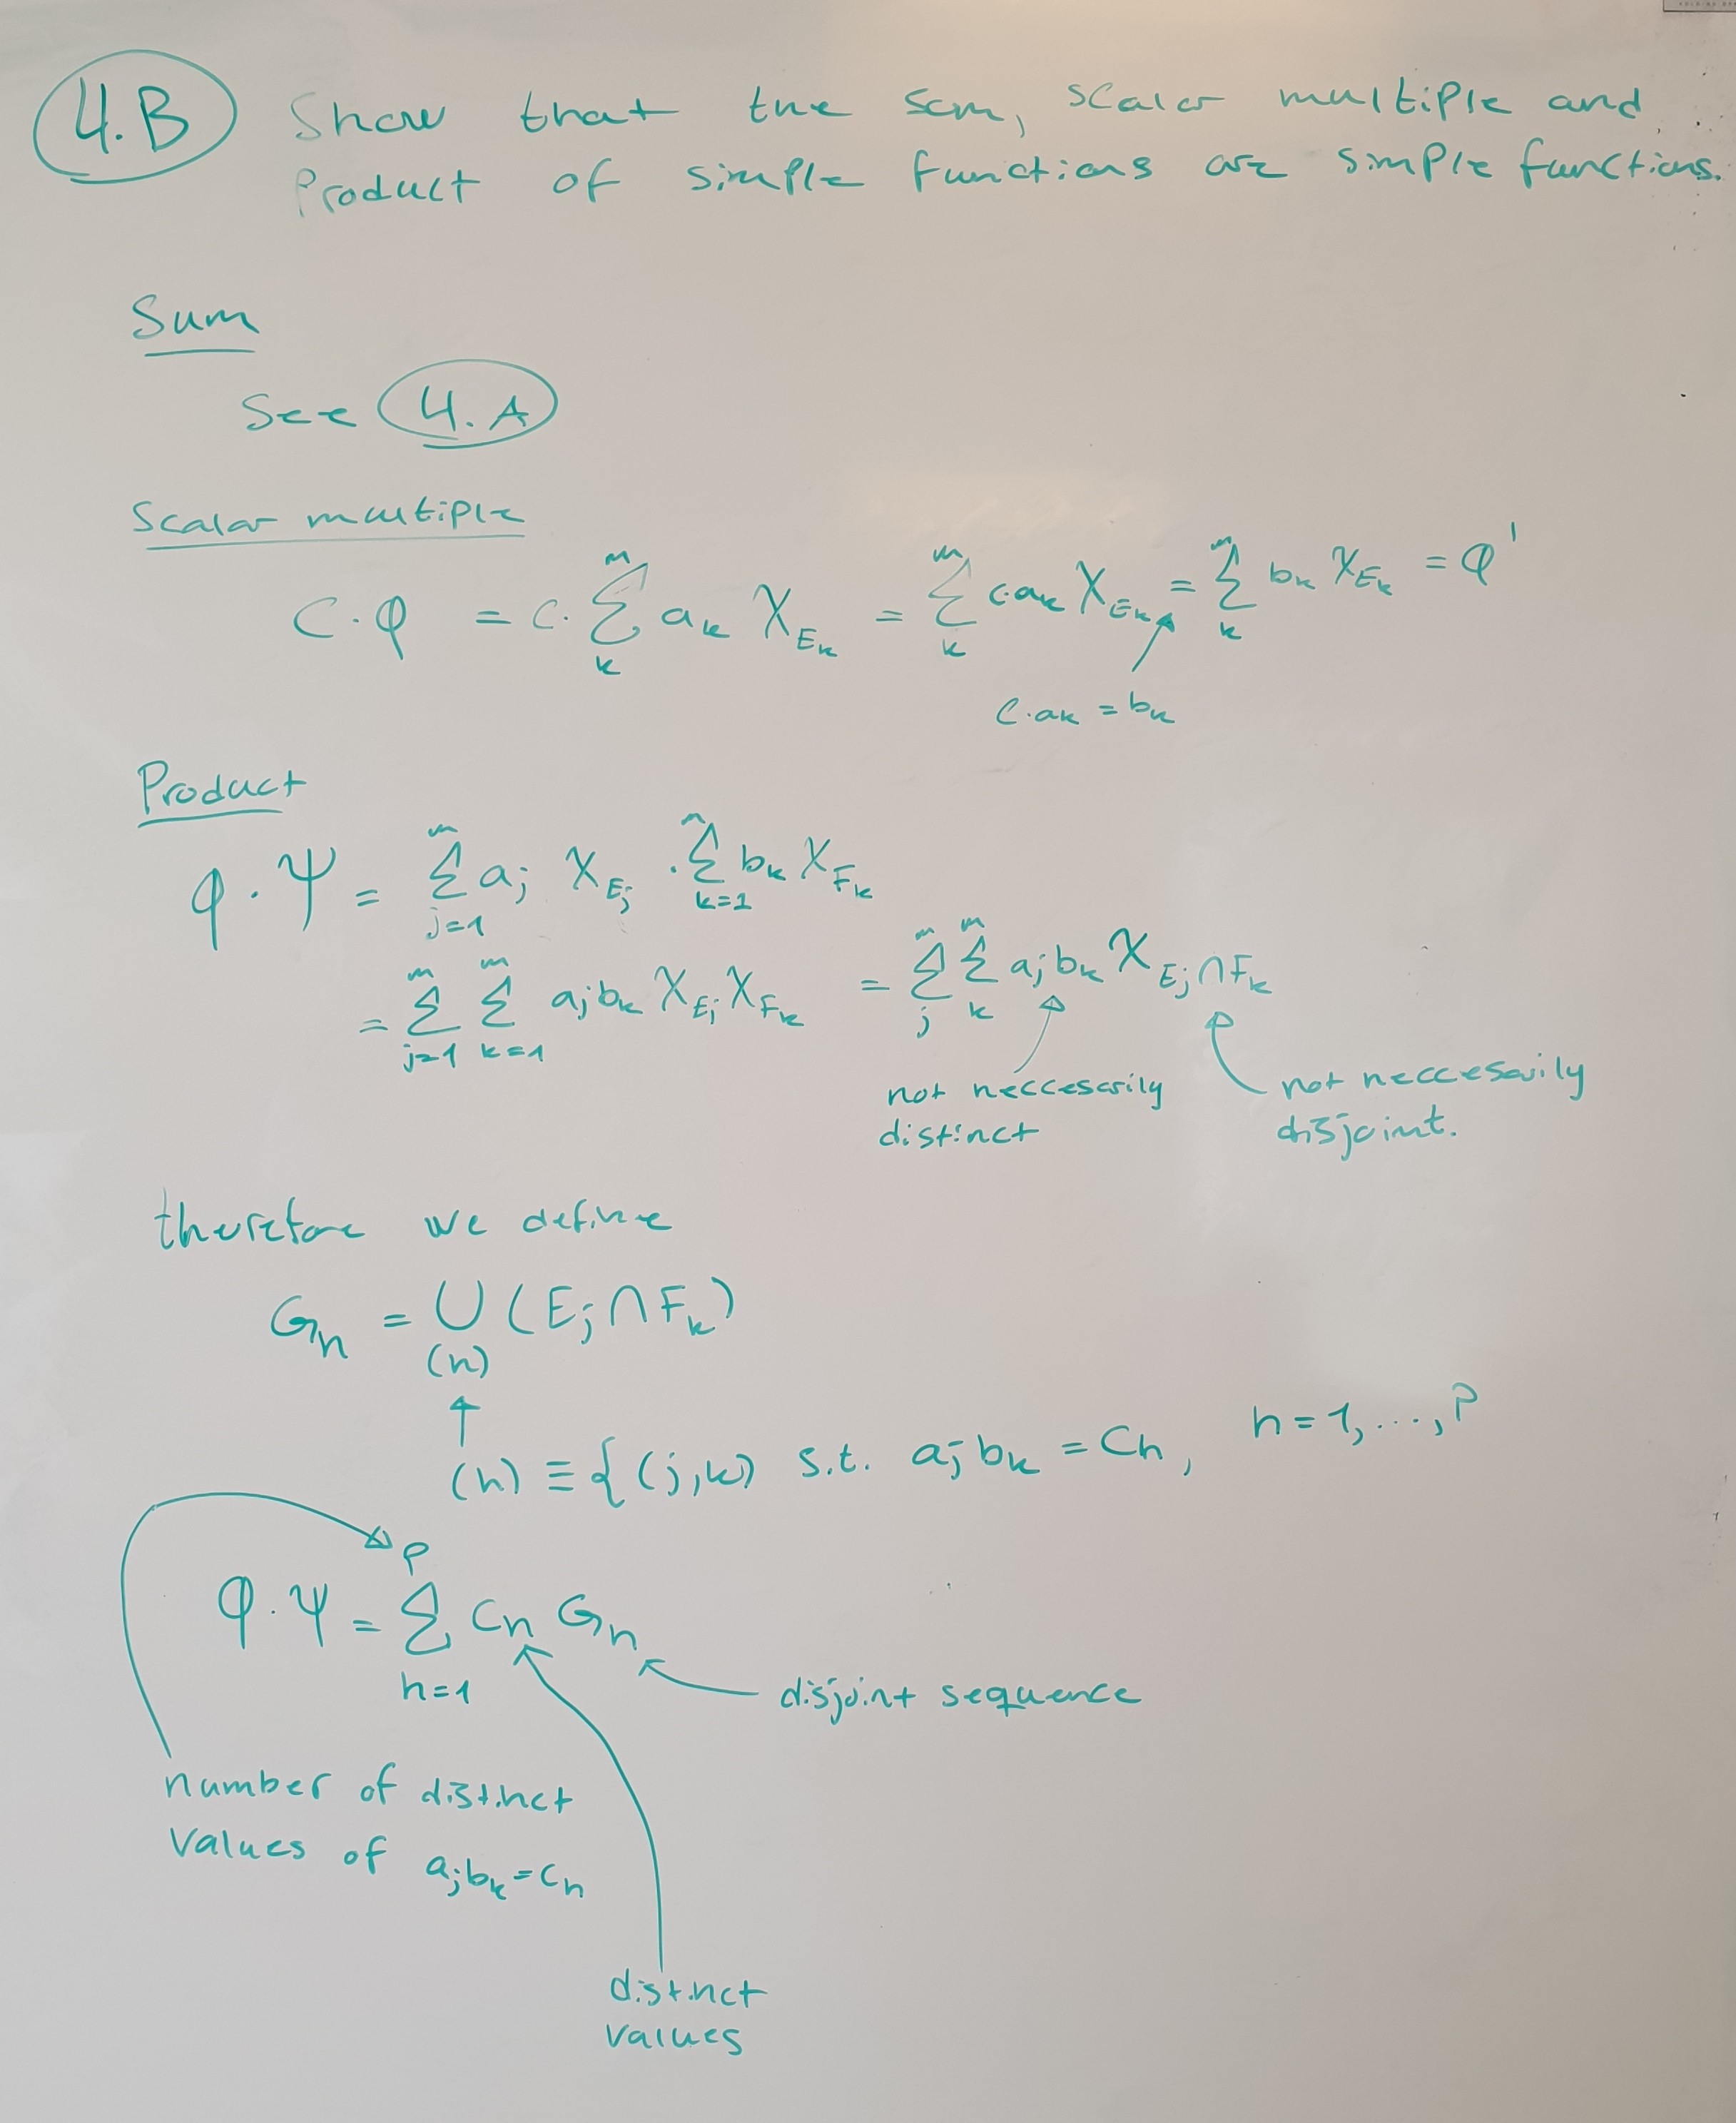 4.B Show that the sum, scalar multiple and
Product of simple functions are simple functions.
Sum
See 4.A
Scalar multiple
C·φ = C·∑_k^m a_k χ_{E_k} = ∑_k^m c·a_k χ_{E_k} = ∑_k^m b_k χ_{E_k} = φ'
C·a_k = b_k
Product
φ·ψ = ∑_{j=1}^m a_j χ_{E_j} · ∑_{k=1}^m b_k χ_{F_k}
= ∑_{j=1}^m ∑_{k=1}^m a_j b_k χ_{E_j} χ_{F_k} = ∑_j^m ∑_k^m a_j b_k χ_{E_j∩F_k}
not neccesarily
distinct
not neccesarily
disjoint.
therefore we define
G_h = ∪_{(h)} (E_j ∩ F_k)
(h) ≡ {(j,k) s.t. a_j b_k = C_h, h=1,...,P
φ·ψ = ∑_{h=1}^P C_h G_h
disjoint sequence
number of distinct
values of a_j b_k = C_h
distinct
values